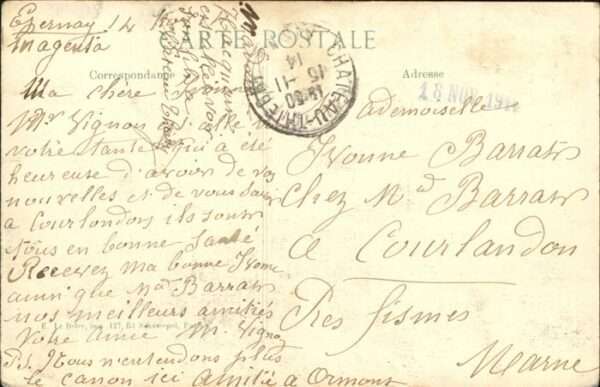 Epernay 14
magenta
CARTE POSTALE
Correspondance
Adresse
CHATEAU-THIERRY
15-11
14
18 NOV 191
Ma chère Yvonne
Mr Vignon
votre tante qui a été
heureuse d'avoir de vos
nouvelles et de vous savoir
a Courlandon ils sont
tous en bonne santé
Recevez ma bonne Yvonne
ainsi que Md Barrat
nos meilleurs amitiés
Votre amie M. Vignon
P.S. Nous n'entendons plus
le canon ici amitié a Ormont
Mademoiselle
Yvonne Barrat
Chez Md Barrat
a Courlandon
Pres fismes
Marne